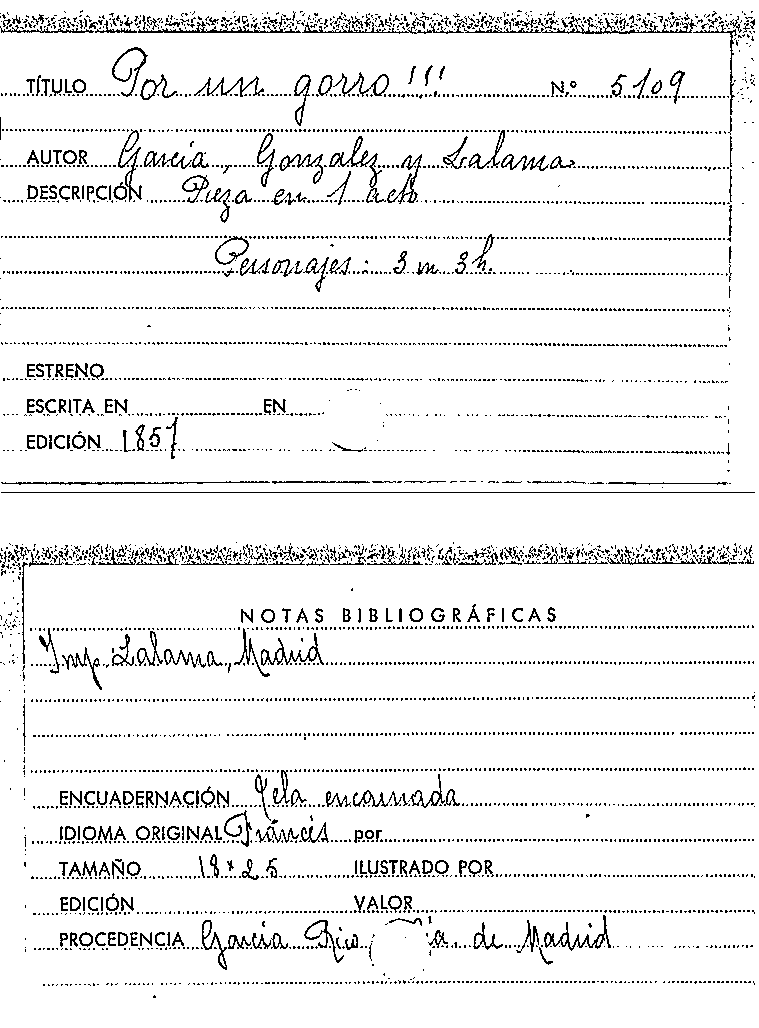 TÍTULO Por un gorro!!! N.º 5109
AUTOR García, Gonzalez y Lalama
DESCRIPCIÓN Pieza en 1 acto
Personajes: 3 m 3 h.
ESTRENO
ESCRITA EN EN
EDICIÓN 1857
NOTAS BIBLIOGRÁFICAS
Imp. Lalama, Madrid
ENCUADERNACIÓN Tela encarnada
IDIOMA ORIGINAL Francés por
TAMAÑO 18 x 25 ILUSTRADO POR
EDICIÓN VALOR
PROCEDENCIA García Rico ía. de Madrid